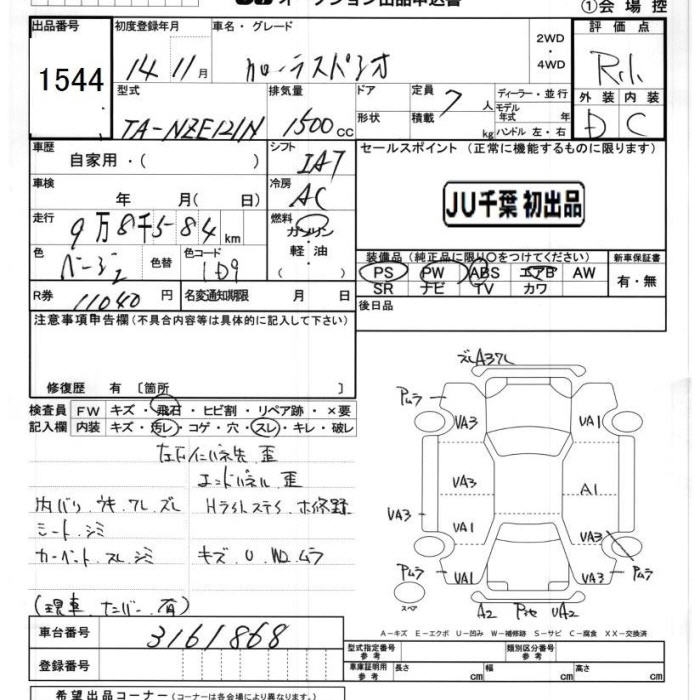 オークション出品申込書
①会場控
出品番号 初度登録年月 車名・グレード 2WD 評価点
1544 14年 11月 カローラスパシオ ・4WD R.h.
型式 排気量 ドア 定員 7人 ディーラー・並行 外装 内装
TA-NZE121N 1500cc 形状 積載 kg モデル年式 年式 ハンドル 左・右 D C
車歴 シフト セールスポイント (正常に機能するものに限ります)
自家用・( ) IAT
車検 冷房 JU千葉 初出品
年 月( 日) AC
走行 燃料
9万8千584km ガソリン
色 色替 色コード 軽油 装備品 (純正品に限り○をつけてください) 新車保証書
ベージュ 1D9 ( ) PS PW ABS エアB AW 有・無
R券 名変通知期限 月 日 SR ナビ TV カワ
11040円 後日品
注意事項申告欄 (不具合内容等は具体的に記入して下さい)
修復歴 有 〔箇所 〕
検査員 FW キズ・飛石・ヒビ割・リペア跡・×要
記入欄 内装 キズ・汚レ・コゲ・穴・スレ・キレ・破レ
エンドパネル 歪
内バリ ウキ ワレ ズレ
シート シミ
カーペット スレ シミ キズ U WD ムラ
(現車 ナンバー 有)
ズレA3ワレ
Pムラ
VA3 VA1
VA3 A1
VA3 VA1 VA3
Pムラ VA1 VA3 Pムラ
スペア A2 UA2
A-キズ E-エクボ U-凹み W-補修跡 S-サビ C-腐食 XX-交換済
車台番号 3161868
登録番号
型式指定番号 参考 類別区分番号 参考
車庫証明用 参考 長さ cm 幅 cm 高さ cm
希望出品コーナー (コーナーは各会場により異なります。)